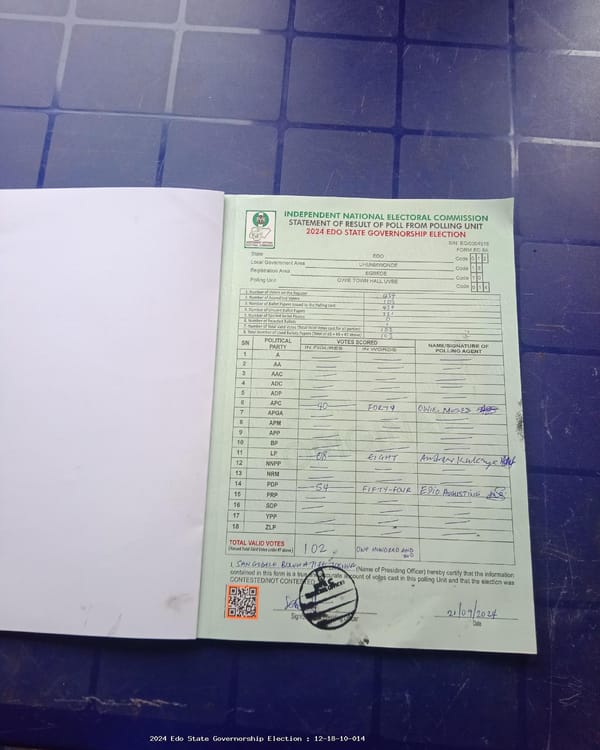 INDEPENDENT NATIONAL ELECTORAL COMMISSION
STATEMENT OF RESULT OF POLL FROM POLLING UNIT
2024 EDO STATE GOVERNORSHIP ELECTION
FORM EC 8A
State EDO Code
Local Government Area UHUNMWONDE Code
Registration Area EGBEDE Code
Polling Unit OWIE TOWN HALL UVBE Code
1. Number of Voters on the Register
2. Number of Accredited Voters
3. Number of Ballot Papers Issued to the Polling Unit
4. Number of Unused Ballot Papers
5. Number of Spoiled Ballot Papers
6. Number of Rejected Ballots
S/N POLITICAL PARTY VOTES SCORED NAME/SIGNATURE OF POLLING AGENT
IN FIGURES IN WORDS
1 A
2 AA
3 AAC
4 ADC
5 ADP
6 APC 40 FORTY OWIE MOSES
7 APGA
8 APM
9 APP
10 BP
11 LP 08 EIGHT Andrew
12 NNPP
13 NRM
14 PDP 54 FIFTY-FOUR EDIO AUGUSTINE
15 PRP
16 SDP
17 YPP
18 ZLP
TOTAL VALID VOTES 102 ONE HUNDRED AND TWO
(Name of Presiding Officer) hereby certify that the information
contained in this form is a true account of votes cast in this polling Unit and that the election was
CONTESTED/NOT CONTESTED
21/09/2024
Date
2024 Edo State Governorship Election : 12-18-10-014